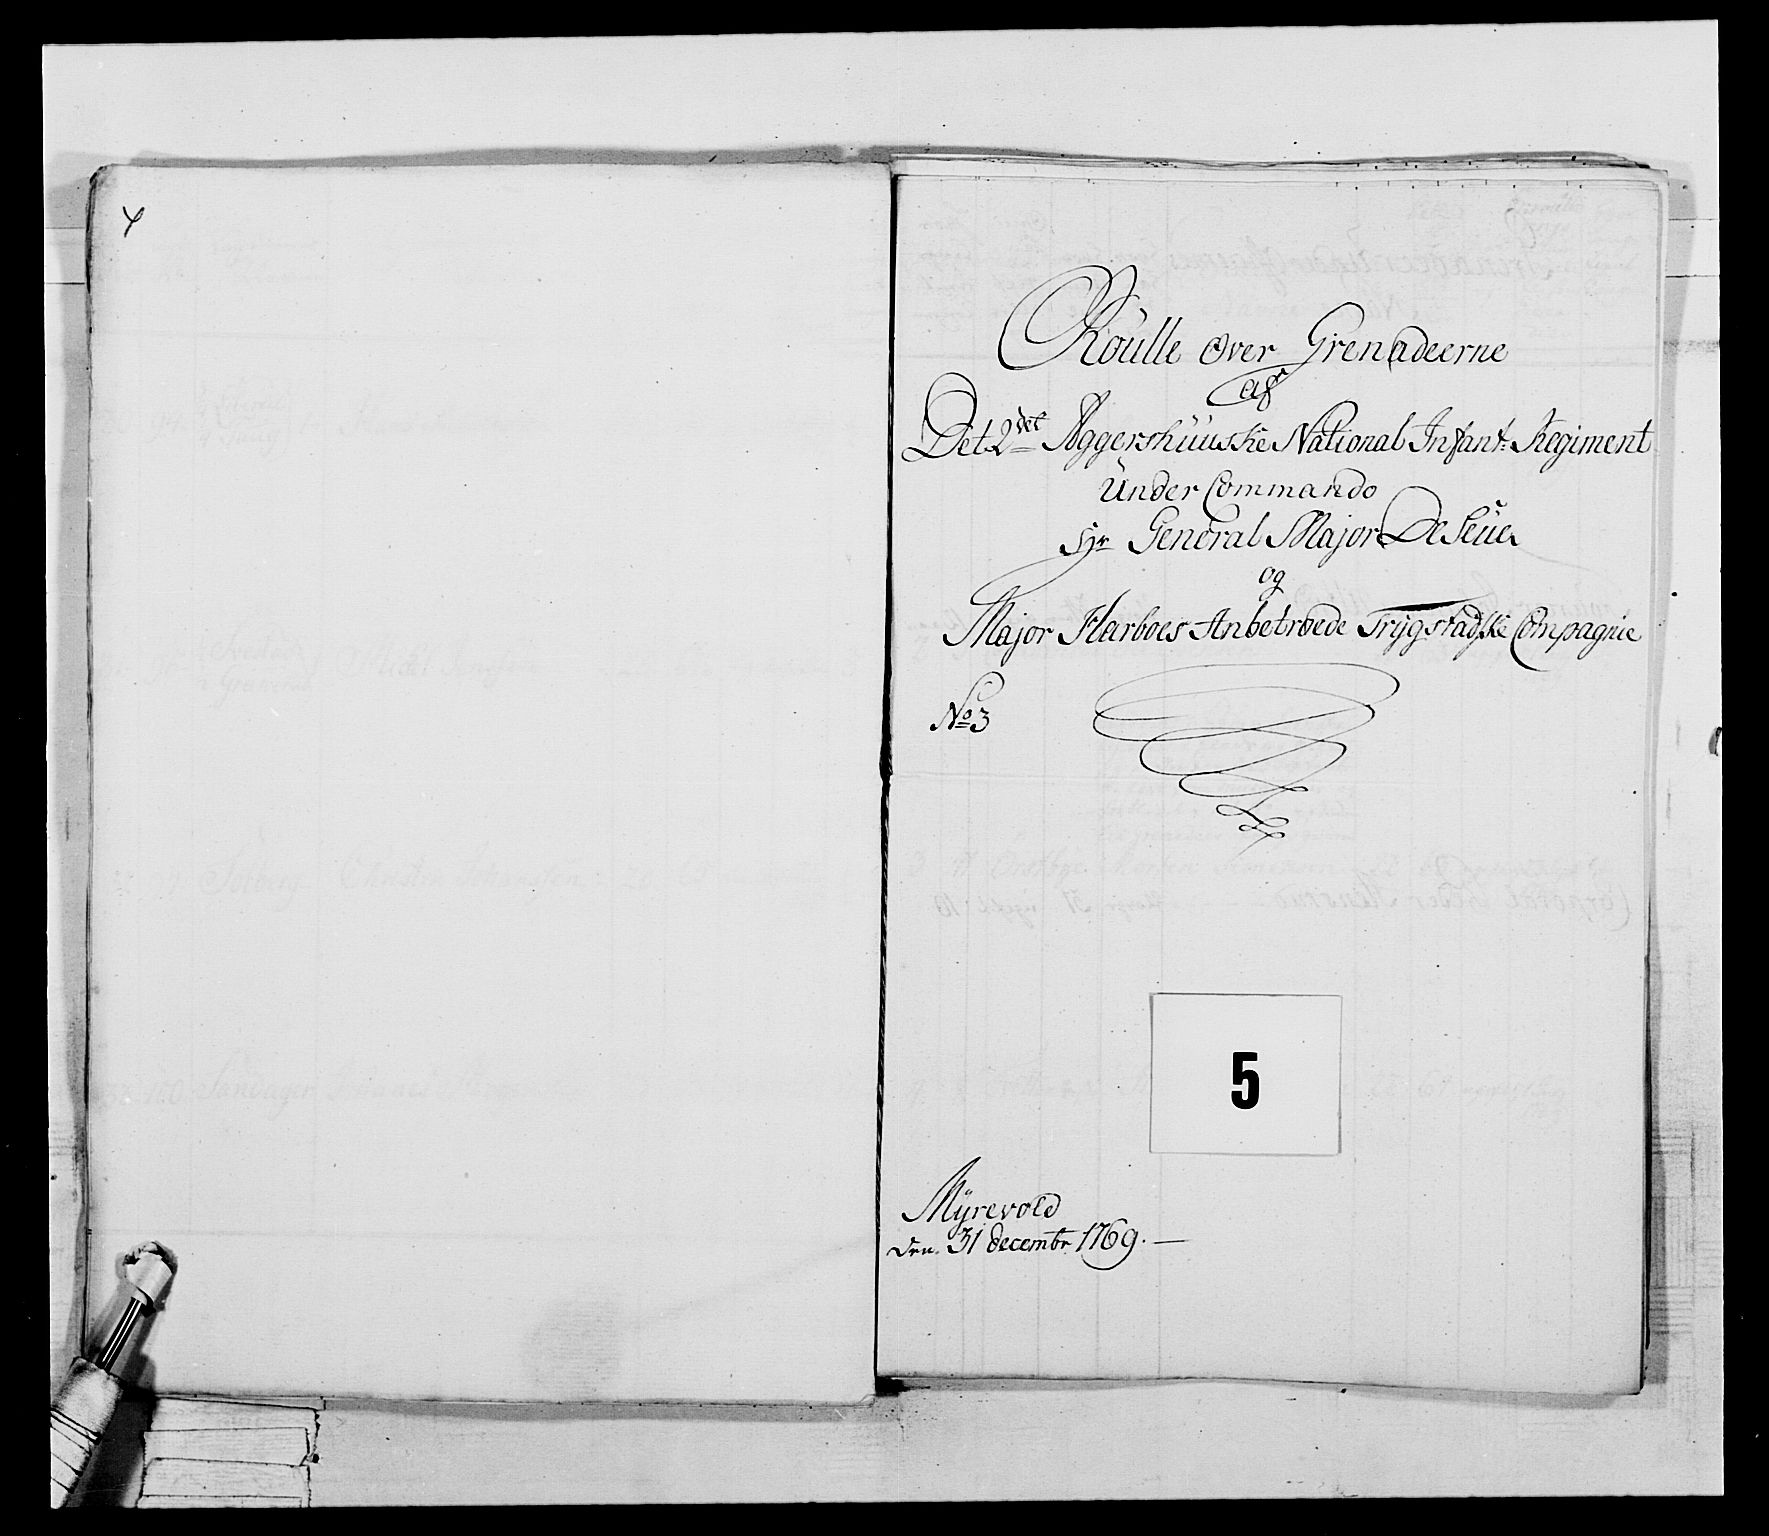 Roülle over Grenadeerne
af
Det 2det Aggershüuske National Infant: Regiment
Ünder Commando
Hr General Major De Seüe
og
Major Harboes Anbetroede Trygstadske Compagnie
No 3
5
Mÿrevold
den. 31 decembr 1769. —